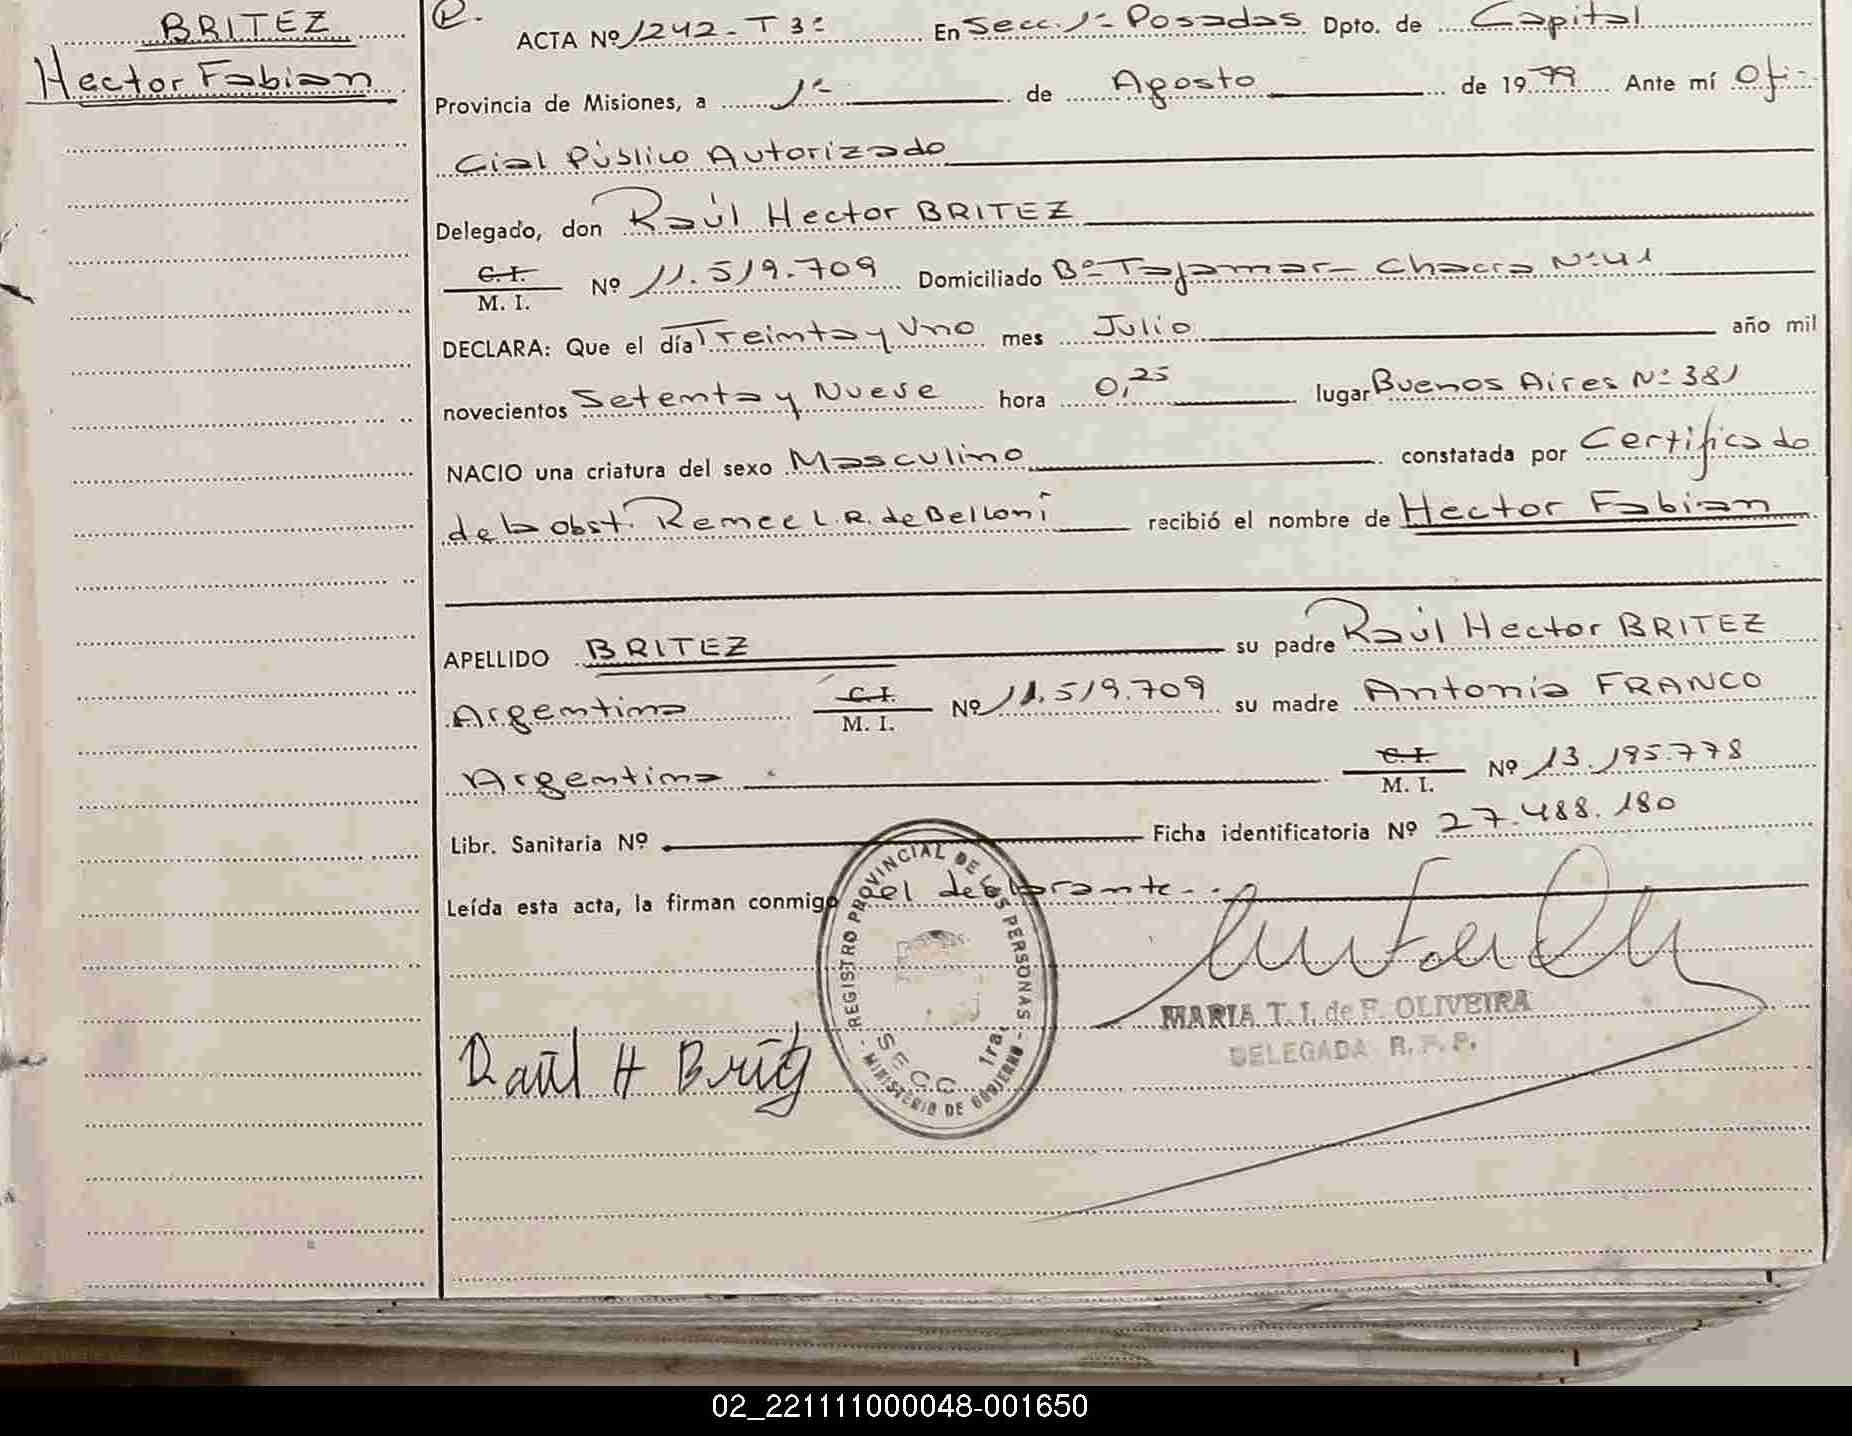 BRITEZ
Hector Fabian
ACTA Nº 1242 - T 3º En Secc. 1ª Posadas Dpto. de Capital
Provincia de Misiones, a 1º de Agosto de 1979 Ante mí Ofi-
cial Público Autorizado
Delegado, don Raúl Hector BRITEZ
C. I.
M. I. Nº 11.519.709 Domiciliado Bº Tajamar - Chacra Nº 41
DECLARA: Que el día Treinta y Uno mes Julio año mil
novecientos Setenta y Nueve hora 0,25 lugar Buenos Aires Nº 381
NACIO una criatura del sexo Masculino constatada por Certificado
de la obst. Remee L. R. de Belloni recibió el nombre de Hector Fabian
APELLIDO BRITEZ su padre Raúl Hector BRITEZ
Argentino C. I.
M. I. Nº 11.519.709 su madre Antonia FRANCO
Argentina C. I.
M. I. Nº 13.195.778
Libr. Sanitaria Nº Ficha identificatoria Nº 27.488.180
Leída esta acta, la firman conmigo el declarante -.
REGISTRO PROVINCIAL DE LAS PERSONAS - MINISTERIO DE GOBIERNO -
SECC 1ra.
MARIA T. I. de F. OLIVEIRA
DELEGADA R. P. P.
Raúl H Britez
02_221111000048-001650